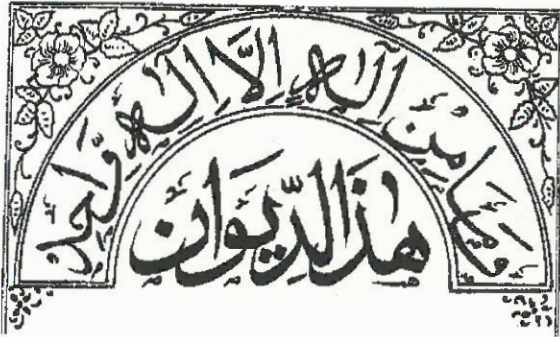 وَمَا مِنْ آلٰهٍ اِلَّا اِلٰهٌ وَاحِد
هٰذَالدِّيوَان